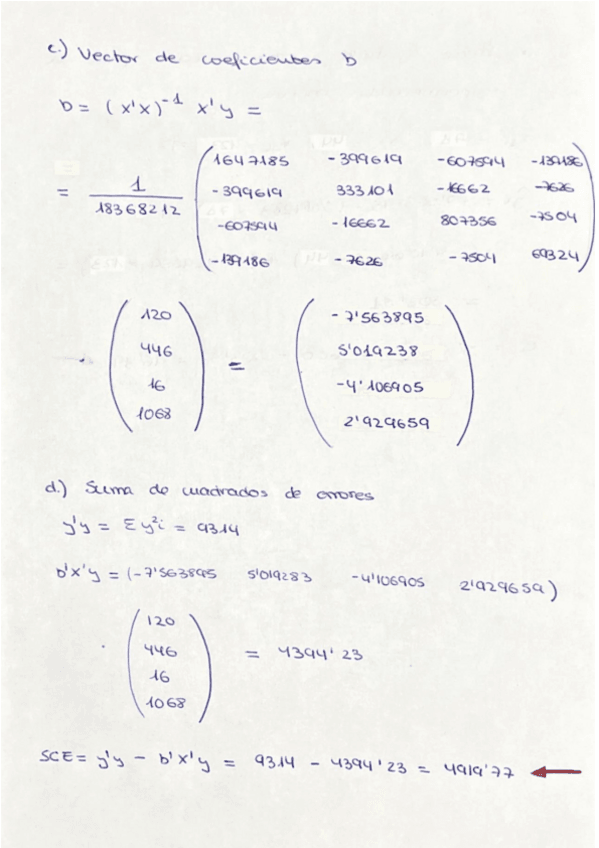 c.) Vector de coeficientes b
b = (x'x)⁻¹ x'y =
= 1/18368212 (1647185 -399619 -607594 -139186
-399619 333101 -16662 -7626
-607594 -16662 807356 -7504
-139186 -7626 -7504 69324)
· (120 446 16 1068) = (-7'563895 5'019238 -4'106905 2'929659)
d.) Suma de cuadrados de errores
y'y = Σy²i = 9314
b'x'y = (-7'563895 5'019283 -4'106905 2'929659)
· (120 446 16 1068) = 4394'23
SCE = y'y - b'x'y = 9314 - 4394'23 = 4919'77